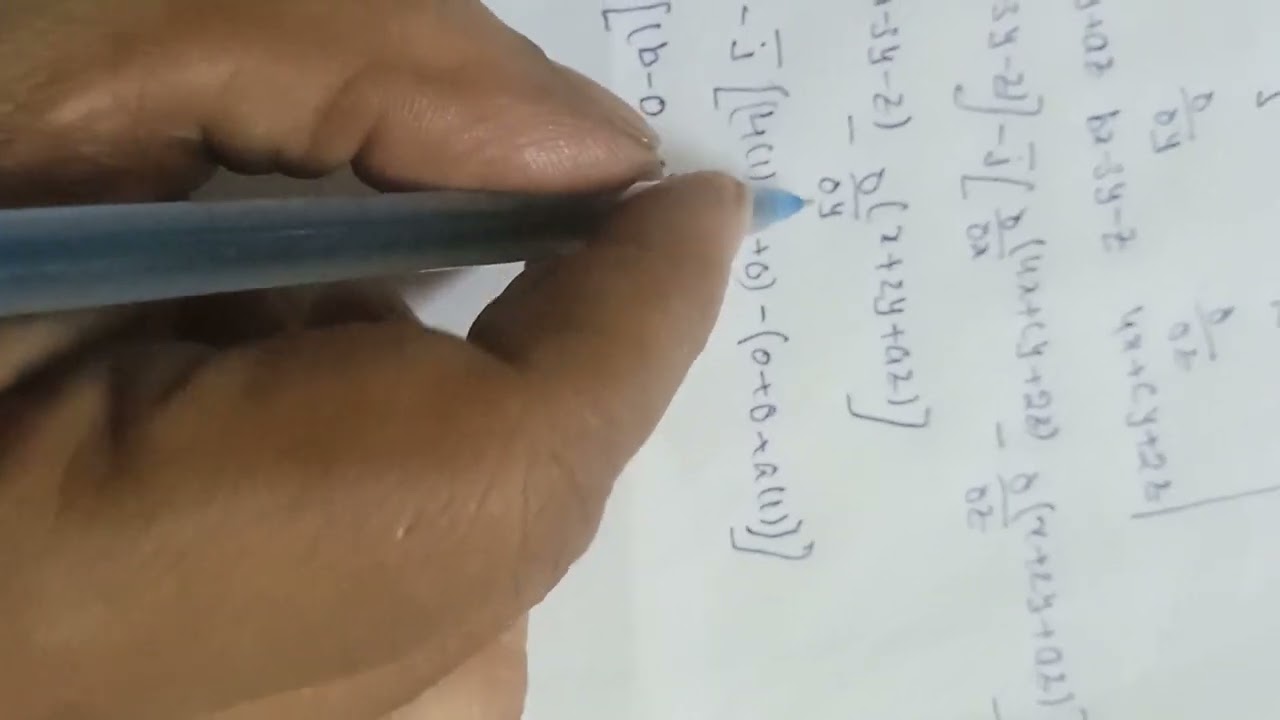 ∂/∂y ∂/∂z
y+az bx-3y-z 4x+cy+2z|
3y-z)] - j̄ [∂/∂x (4x+cy+2z) - ∂/∂z (x+2y+az)
-3y-z) - ∂/∂y (x+2y+az)]
- j̄ [(4(1) +0) - (0+0+a(1))]
[(b-0